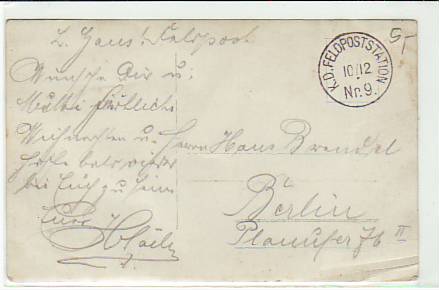 L. Hans! Feldpost
Wünsche Dir u.
Mutti
Weihnachten u.
hoffe bald wieder
bei Euch zu sein
Euer
K.D. FELDPOSTSTATION
10/12
Nr. 9.
5,-
Herrn Hans Brendel
Berlin
Planufer 76 II